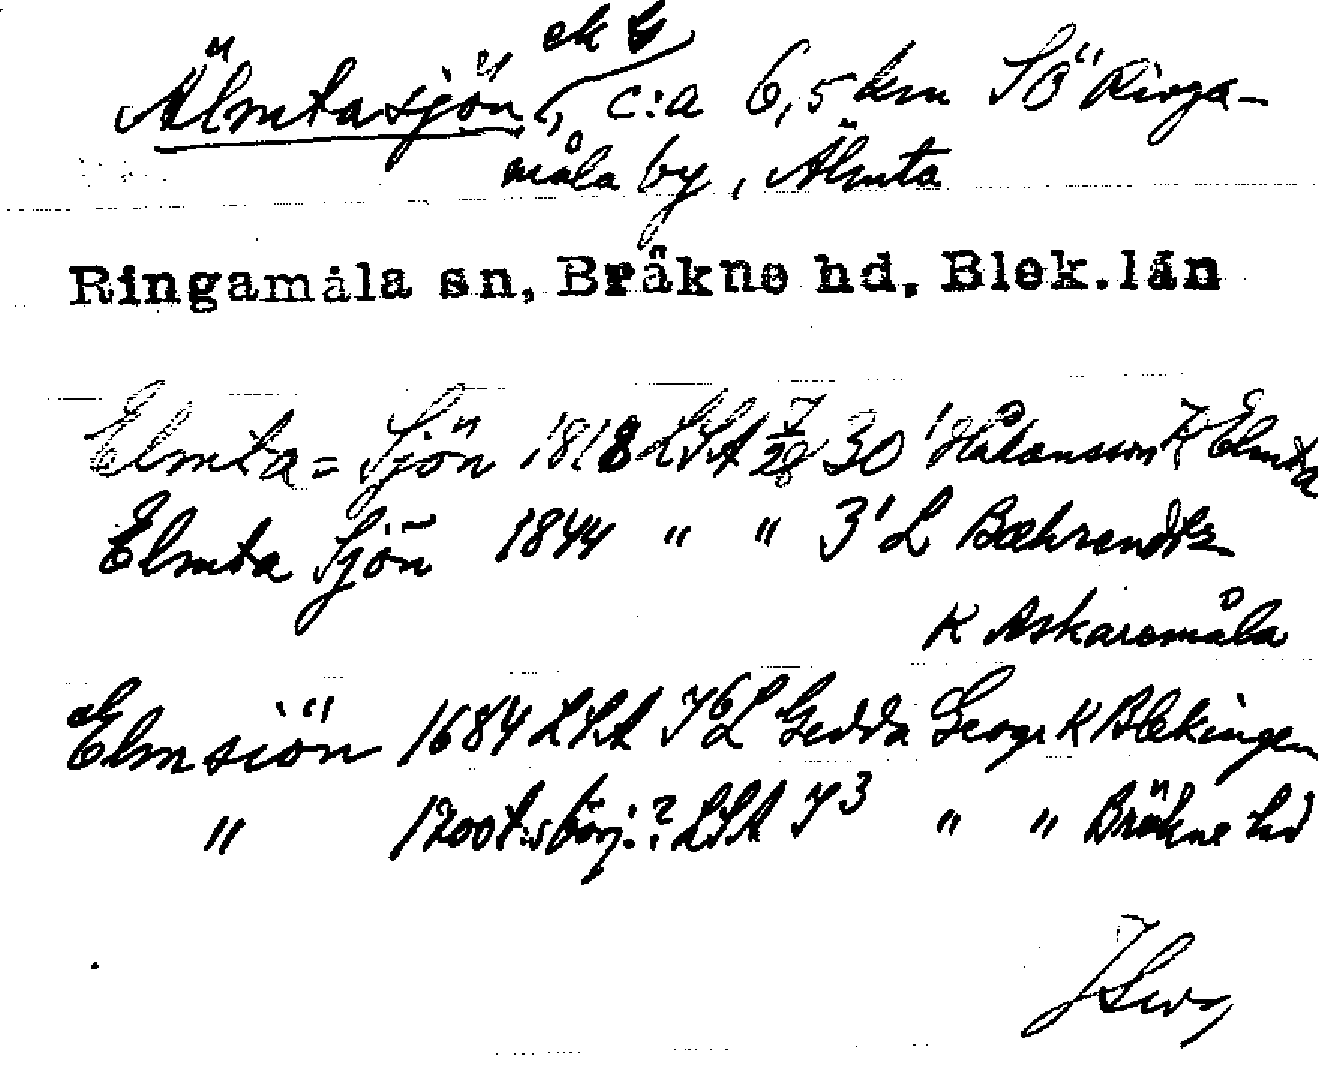 ek G
Älmtasjön, c:a 6,5 km SÖ Ringa-
måla by, Älmta
Ringamåla sn, Bräkne hd, Blek.län
Elmta = Sjön 1818 LSA 30' Håkansson K Elmta
Elmta Sjön 1844 " " 3' L Bæhrendtz
K Askaremåla
Elmsiön 1684 LSA L Gedda George K Blekingen
" 1700t:s börj.? LSA " " Bräkne hd